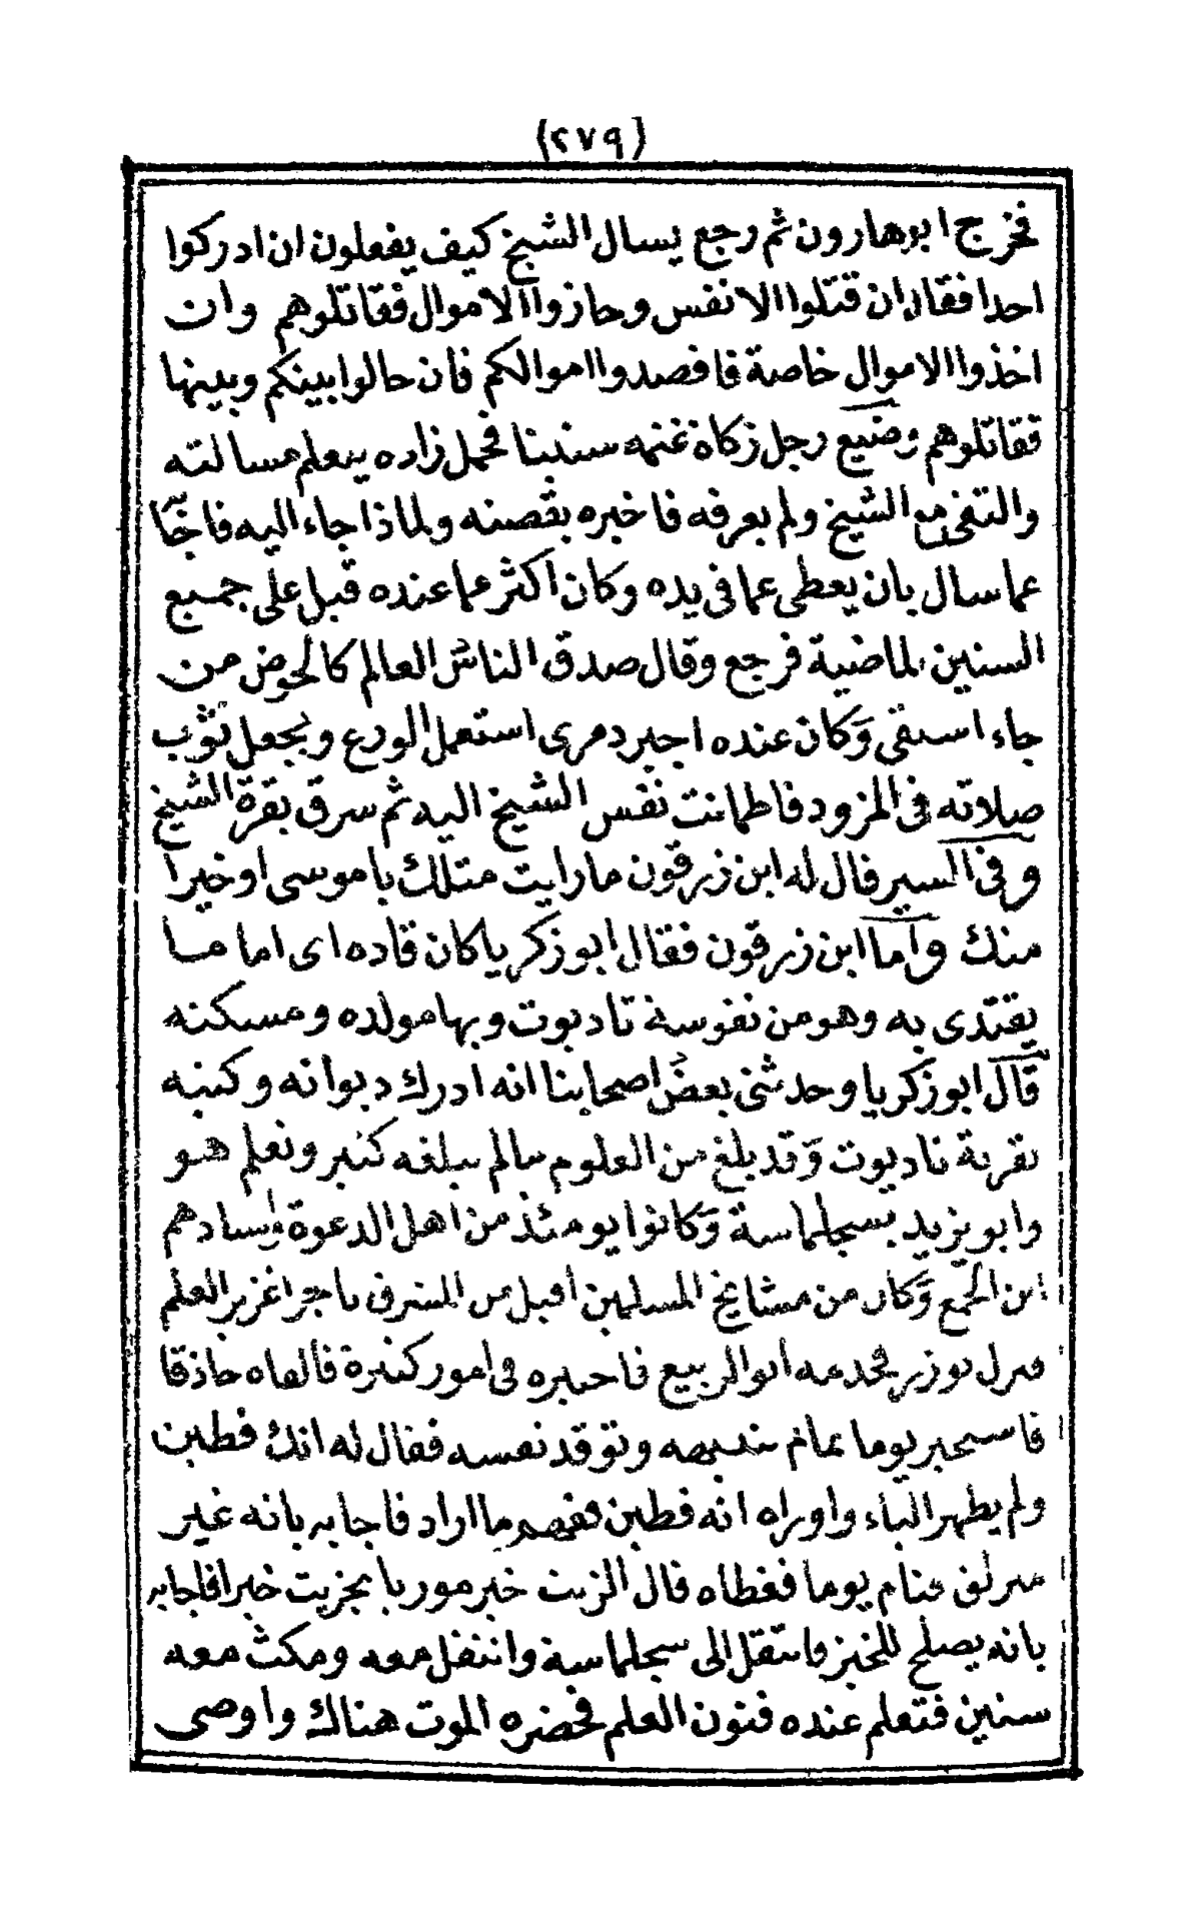 (٢٧٩)
فخرج ابو هارون ثم رجع يسال الشيخ كيف يفعلون ان ادركوا
احدا فقال ان قتلوا الانفس وحازوا الاموال فقاتلوهم وان
اخذوا الاموال خاصة فاقصدوا اموالكم فان حالوا بينكم وبينها
فقاتلوهم وضيع رجل زكاة غنمه سنينا فحمل زاده يتعلم مسالته
والتقى مع الشيخ ولم يعرفه فاخبره بقصته ولماذا جاء اليه فاخبا
عما سال بان يعطى عما فى يده وكان اكثر عما عنده قبل على جميع
السنين الماضية فرجع وقال صدق الناس العالم كالحوض من
جاء استقى وكان عنده اجير دمرى استعمل الورع ويجعل ثوب
صلاته فى المزود فاطمانت نفس الشيخ اليه ثم سرق بقرة الشيخ
وفى السير قال له ابن زرقون ما رايت مثلك يا موسى او خيرا
منك واما ابن زرقون فقال ابو زكريا كان قاده اى اما مـا
يقتدى به وهو من نفوسة تاديوت وبها مولده ومسكنه
قال ابو زكريا وحدثنى بعض اصحابنا انه ادرك ديوانه وكتبه
بقرية تاديوت وقد بلغ من العلوم ما لم يبلغه كثير وتعلم هو
وابو يزيد بسجلماسة وكانوا يومئذ من اهل الدعوة واستادهم
ابن الجمع وكان من مشايخ المسلمين اقبل من المشرق تاجرا غزير العلم
فنزل توزر فخدمه ابو الربيع فاختبره فى امور كثيرة فالفاه حاذقا
يوما تمام وتوقد نفسه فقال له انك فطين
ولم يظهر الباء واوراه انه فطين ففهم ما اراد فاجابه بانه غير
يوما فغطاه قال الزيت خير موريا بخزيت خيرا فاجابه
بانه يصلح للخبز فانتقل الى سجلماسة وانتقل معه ومكث معه
سنين فتعلم عنده فنون العلم فحضره الموت هناك واوصى